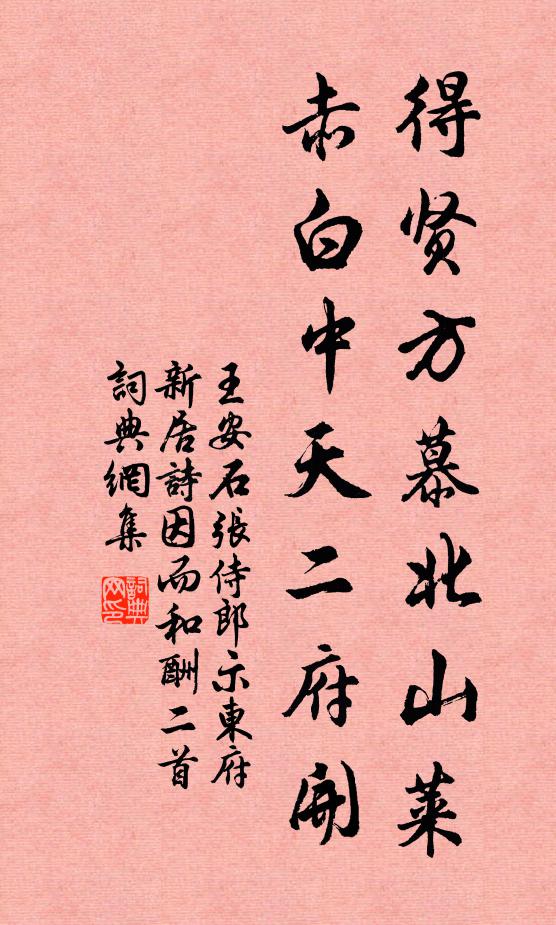 得贤方慕北山莱
赤白中天二府開
王安石張侍郎示東府
新居詩因而和酬二首
詞典網集
詞典
网印